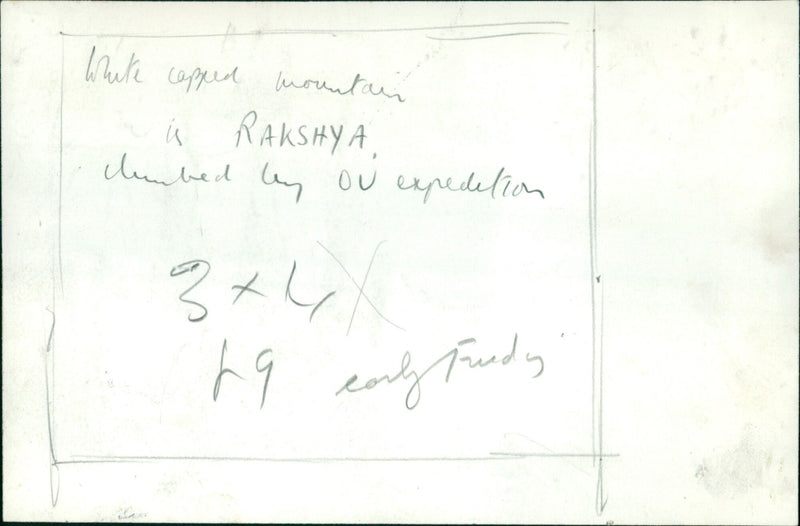 White capped mountain
is RAKSHYA
climbed by OU expedition
3 x 4
F9 early Tuesday